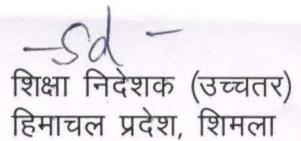 -Sd-
शिक्षा निदेशक (उच्चतर)
हिमाचल प्रदेश, शिमला